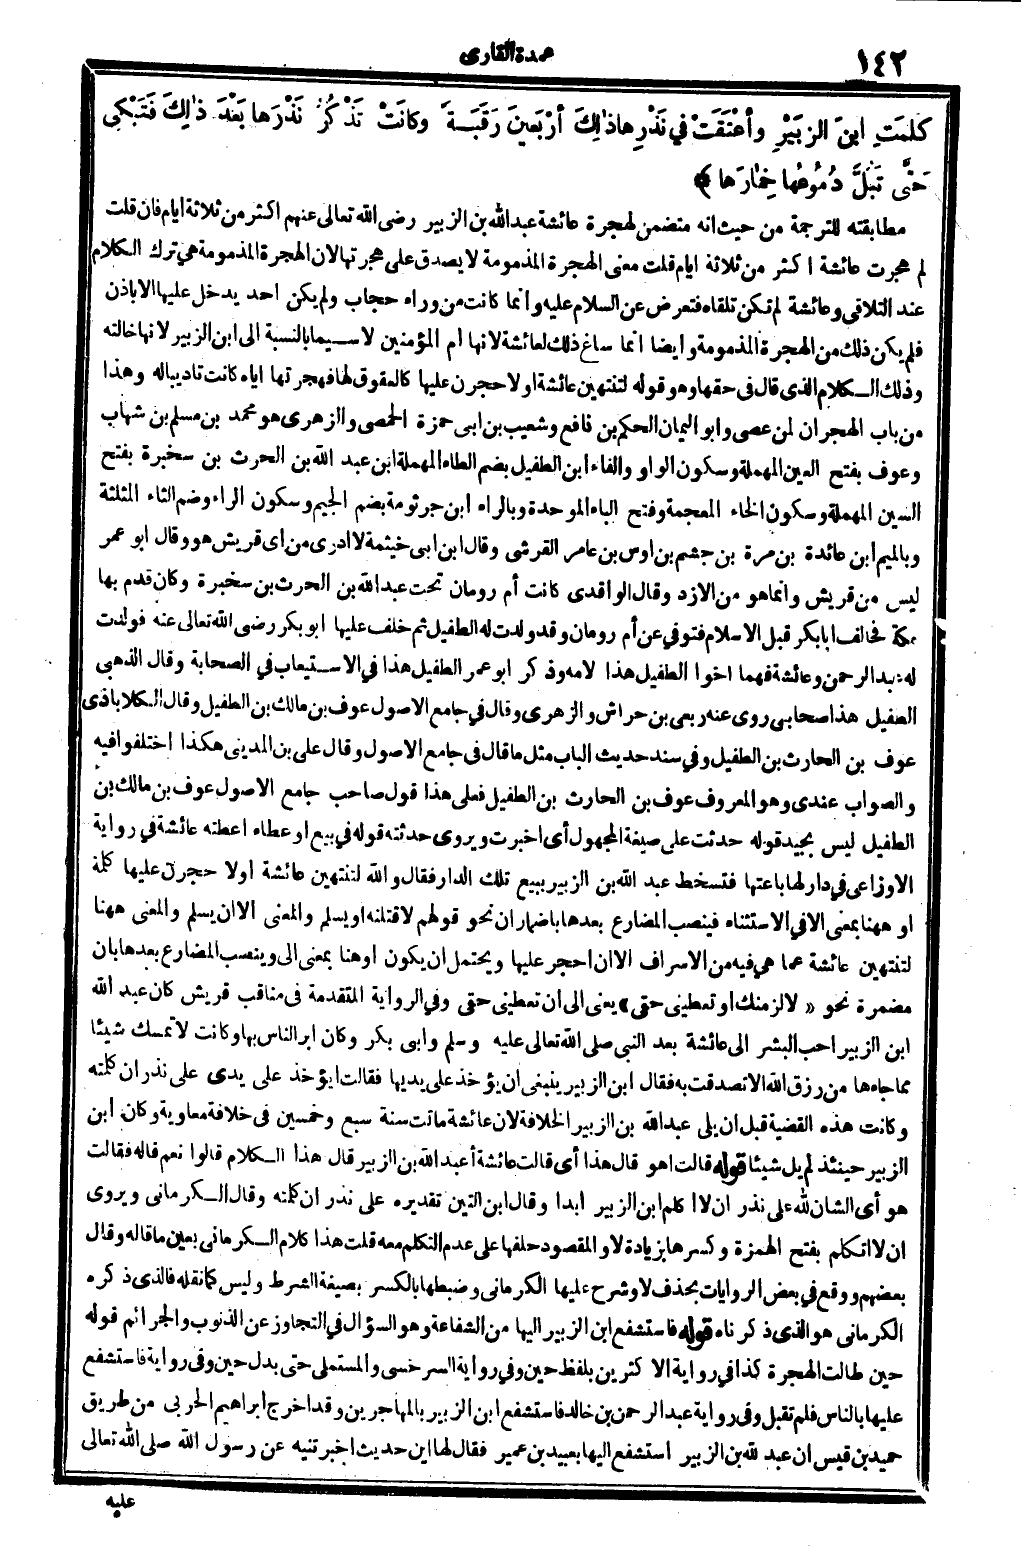 ١٤٢
عمدة القارى
كلمَتِ ابنَ الزبَيْرِ وأعْتَقَتْ في نَذْرِها ذٰلِكَ أرْبَعينَ رَقَبَـةً وكانَتْ تَذْكُرُ نَذْرَها بَعْدَ ذٰلِكَ فَتَبْكِى
حَتَّى تَبُلَّ دُمُوعُها خِمارَها ﴾
مطابقته للترجمة من حيث انه متضمن لهجرة عائشة عبدالله بن الزبير رضى الله تعالى عنهم اكثر من ثلاثة ايام فان قلت
لم هجرت عائشة اكثر من ثلاثة ايام قلت معنى الهجرة المذمومة لا يصدق على هجرتها لان الهجرة المذمومة هى ترك الكلام
عند التلاقى وعائشة لم تكن تلقاه فتعرض عن السلام عليه وانما كانت من وراء حجاب ولم يكن احد يدخل عليها الا باذن
فلم يكن ذلك من الهجرة المذمومة وايضا انما ساغ ذلك لعائشة لانها ام المؤمنين لا سيما بالنسبة الى ابن الزبير لانها خالته
وذلك الكلام الذى قال فى حقها وهو قوله لتنتهين عائشة او لاحجرن عليها كالعقوق لها فهجرتها اياه كانت تاديبا له وهذا
من باب الهجران لمن عصى وابو اليمان الحكم بن نافع وشعيب بن ابى حمزة الحمصى والزهرى هو محمد بن مسلم بن شهاب
وعوف بفتح العين المهملة وسكون الواو والفاء ابن الطفيل بضم الطاء المهملة ابن عبد الله بن الحرث بن سخبرة بفتح
السين المهملة وسكون الخاء المعجمة وفتح الباء الموحدة وبالراء ابن جرثومة بضم الجيم وسكون الراء وضم الثاء المثلثة
وبالميم ابن عائدة بن مرة بن جشم بن اوس بن عامر القرشى وقال ابن ابى خيثمة لا ادرى من اى قريش هو وقال ابو عمر
ليس من قريش وانما هو من الازد وقال الواقدى كانت أم رومان تحت عبدالله بن الحرث بن سخبرة وكان قدم بها
مكة فحالف ابا بكر قبل الاسلام فتوفى عن أم رومان وقد ولدت له الطفيل ثم خلف عليها ابو بكر رضى الله تعالى عنه فولدت
له عبد الرحمن وعائشة فهما اخوا الطفيل هذا لامه وذكر ابو عمر الطفيل هذا في الاستيعاب في الصحابة وقال الذهبى
الطفيل هذا صحابى روى عنه ربعى بن حراش والزهرى وقال في جامع الاصول عوف بن مالك بن الطفيل وقال الكلاباذى
عوف بن الحارث بن الطفيل وفي سند حديث الباب مثل ما قال فى جامع الاصول وقال على بن المدينى هكذا اختلفوا فيه
والصواب عندى وهو المعروف عوف بن الحارث بن الطفيل فعلى هذا قول صاحب جامع الاصول عوف بن مالك بن
الطفيل ليس بجيد قوله حدثت على صيغة المجهول أى اخبرت ويروى حدثته قوله في بيع او عطاء اعطته عائشة في رواية
الاوزاعى في دار لها باعتها فتسخط عبد الله بن الزبير ببيع تلك الدار فقال والله لتنتهين عائشة او لا حجرن عليها كلمة
او ههنا بمعنى الا في الاستثناء فينصب المضارع بعدها باضمار ان نحو قولهم لاقتلنه او يسلم والمعنى الا ان يسلم والمعنى ههنا
لتنتهين عائشة عما هى فيه من الاسراف الا ان احجر عليها ويحتمل ان يكون او هنا بمعنى الى وينصب المضارع بعدها بان
مضمرة نحو « لالزمنك او تعطينى حقى » يعنى الى ان تعطينى حقى وفي الرواية المتقدمة فى مناقب قريش كان عبد الله
ابن الزبير احب البشر الى عائشة بعد النبى صلى الله تعالى عليه وسلم وابى بكر وكان ابر الناس بها وكانت لا تمسك شيئا
مما جاءها من رزق الله الا تصدقت به فقال ابن الزبير ينبغى ان يؤخذ على يديها فقالت ايؤخذ على يدى على نذر ان كلمته
وكانت هذه القضية قبل ان يلى عبدالله بن الزبير الخلافة لان عائشة ماتت سنة سبع وخمسين فى خلافة معاوية وكان ابن
الزبير حينئذ لم يل شيئا قوله قالت اهو قال هذا أى قالت عائشة أعبد الله بن الزبير قال هذا الكلام قالوا نعم قاله فقالت
هو أى الشان لله على نذر ان لا اكلم ابن الزبير ابدا وقال ابن التين تقديره على نذر ان كلمته وقال الكرمانى ويروى
ان لا اتكلم بفتح الهمزة وكسرها بزيادة لا والمقصود حلفها على عدم التكلم معه قلت هذا كلام الكرمانى بعين ما قاله وقال
بعضهم ووقع في بعض الروايات بحذف لا وشرح عليها الكرمانى وضبطها بالكسر بصيغة الشرط وليس كما نقله فالذى ذكره
الكرمانى هو الذى ذكرناه قوله فاستشفع ابن الزبير اليها من الشفاعة وهو السؤال في التجاوز عن الذنوب والجرائم قوله
حين طالت الهجرة كذا في رواية الاكثرين بلفظ حين وفي رواية السرخسى والمستملى حتى بدل حين وفى رواية فاستشفع
عليها بالناس فلم تقبل وفى رواية عبد الرحمن بن خالد فاستشفع ابن الزبير بالمهاجرين وقد اخرج ابراهيم الحربى من طريق
حميد بن قيس ان عبد لله بن الزبير استشفع اليها بعبيد بن عمير فقال لها اين حديث اخبرتنيه عن رسول الله صلى الله تعالى
عليه